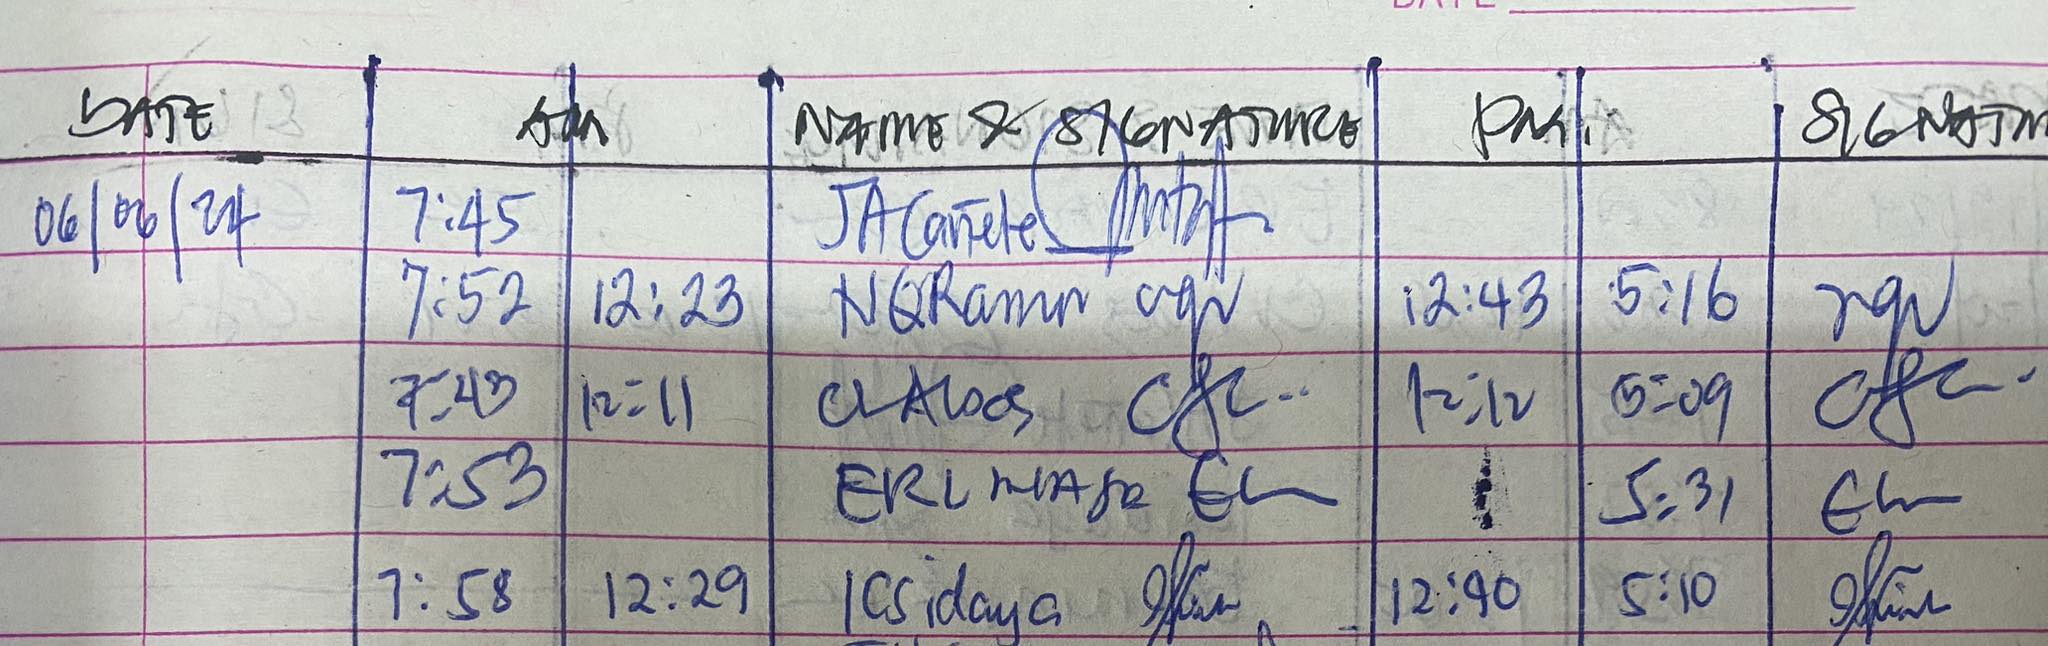 DATE
DATE AM NAME & SIGNATURE PM. SIGNATU
06/06/24 7:45 JACañete
7:52 12:23 NQRamir 12:43 5:16
7:43 12:11 12:12 5:09
7:53 ERL 5:31
7:58 12:29 ICSidaya 12:40 5:10